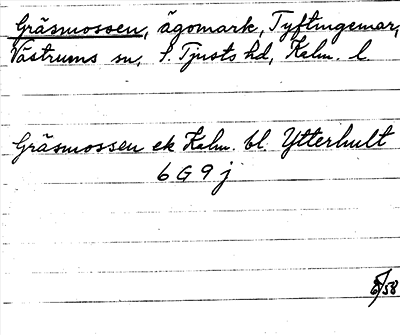 Gräsmossen, ägomark, Tyftingemar,
Västrums sn, S. Tjusts hd, Kalm. l.
Gräsmossen ek Kalm. bl. Ytterhult
6 G 9 j
8/58